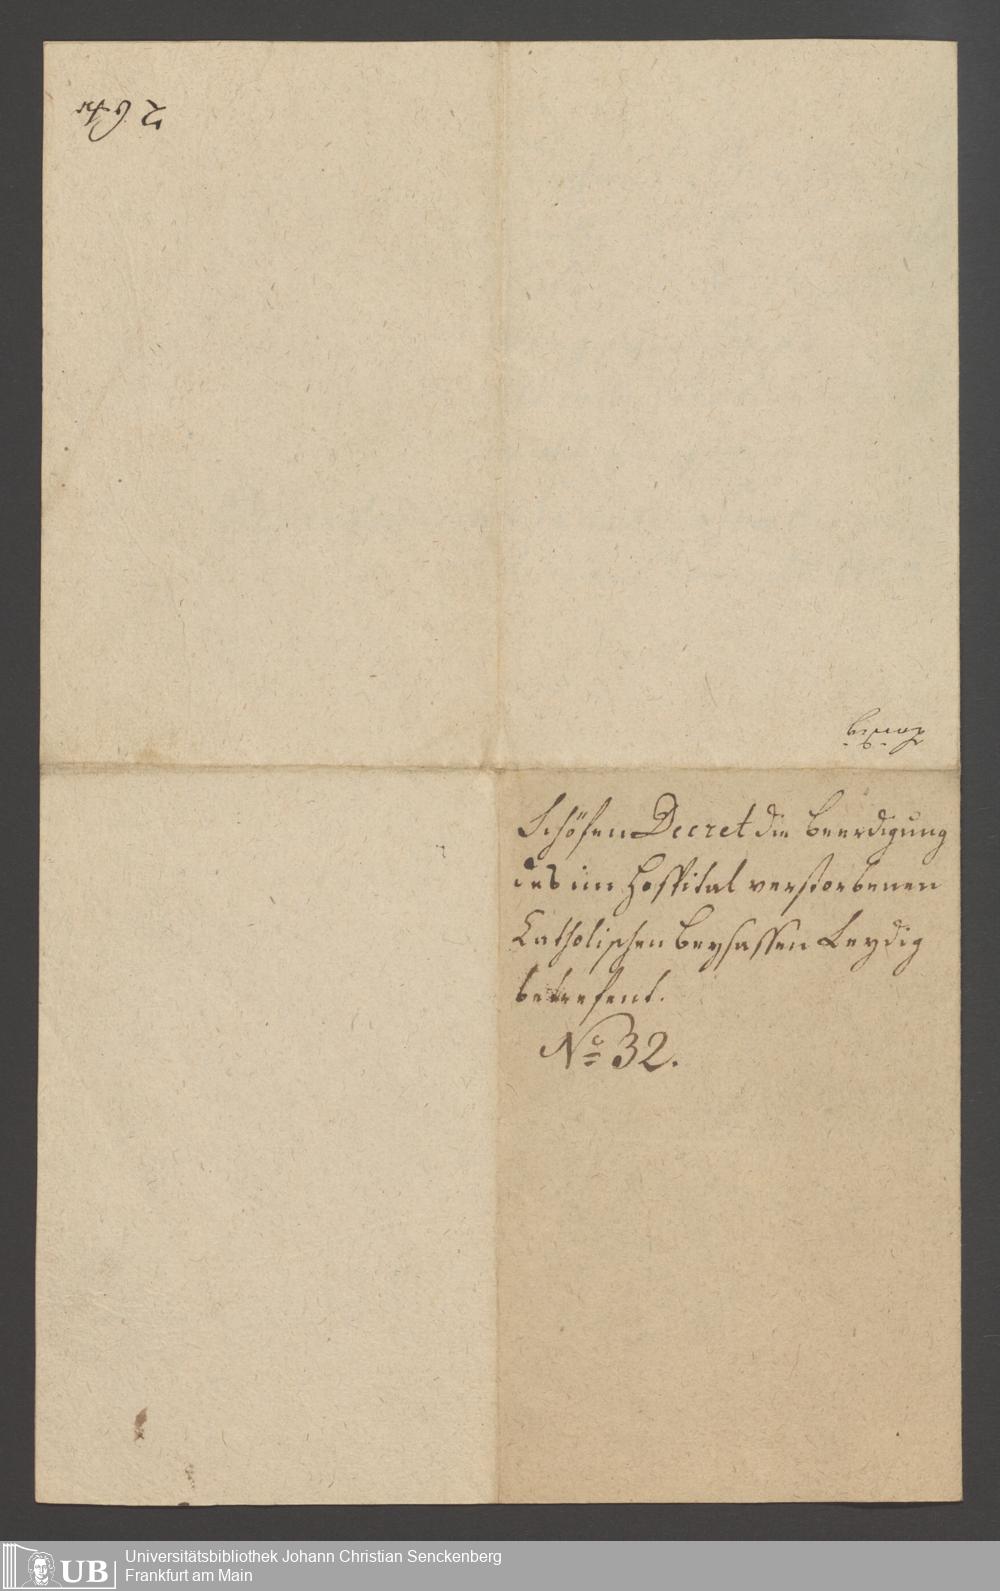 Schöfen Decret die Beerdigung
des im Hospital verstorbenen
Catholischen Beysassen Leydig
betrefent.
No 32.
UB
Universitätsbibliothek Johann Christian Senckenberg
Frankfurt am Main